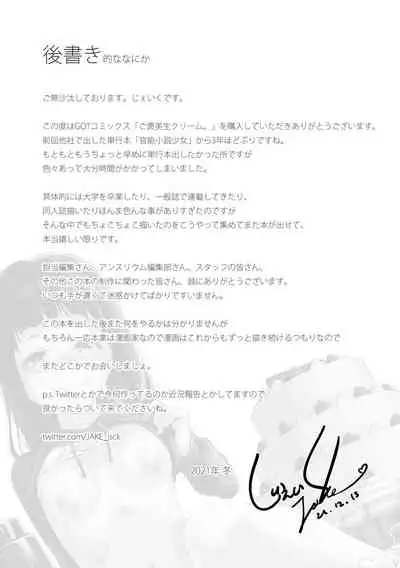 後書き的ななにか
ご無沙汰しております。じぇいくです。
この度はGOTコミックス「ご褒美生クリーム。」を購入していただきありがとうございます。
前回他社で出した単行本「官能小説少女」から3年ほどぶりですね。
もともともうちょっと早めに単行本出したかった所ですが
色々あって大分時間がかかってしまいました。
具体的には大学を卒業したり、一般誌で連載してきたり、
同人誌描いたりほんま色んな事がありすぎたのですが
そんな中でもちょこちょこ描いたのをこうやって集めてまた本が出せて、
本当嬉しい限りです。
担当編集さん、アンスリウム編集部さん、スタッフの皆さん、
その他この本の制作に関わった皆さん、誠にありがとうございます。
いつも手が遅くて迷惑かけてばかりですいません。
この本を出した後また何をやるかは分かりませんが
もちろん一応本業は漫画家なので漫画はこれからもずっと描き続けるつもりなので
またどこかでお会いしましょ。
p.s. Twitterとかで今何作ってるのか近況報告とかしてますので
良かったらついて来てくださいね。
twitter.com/JAKE_jsck
2021年 冬
21.12.13